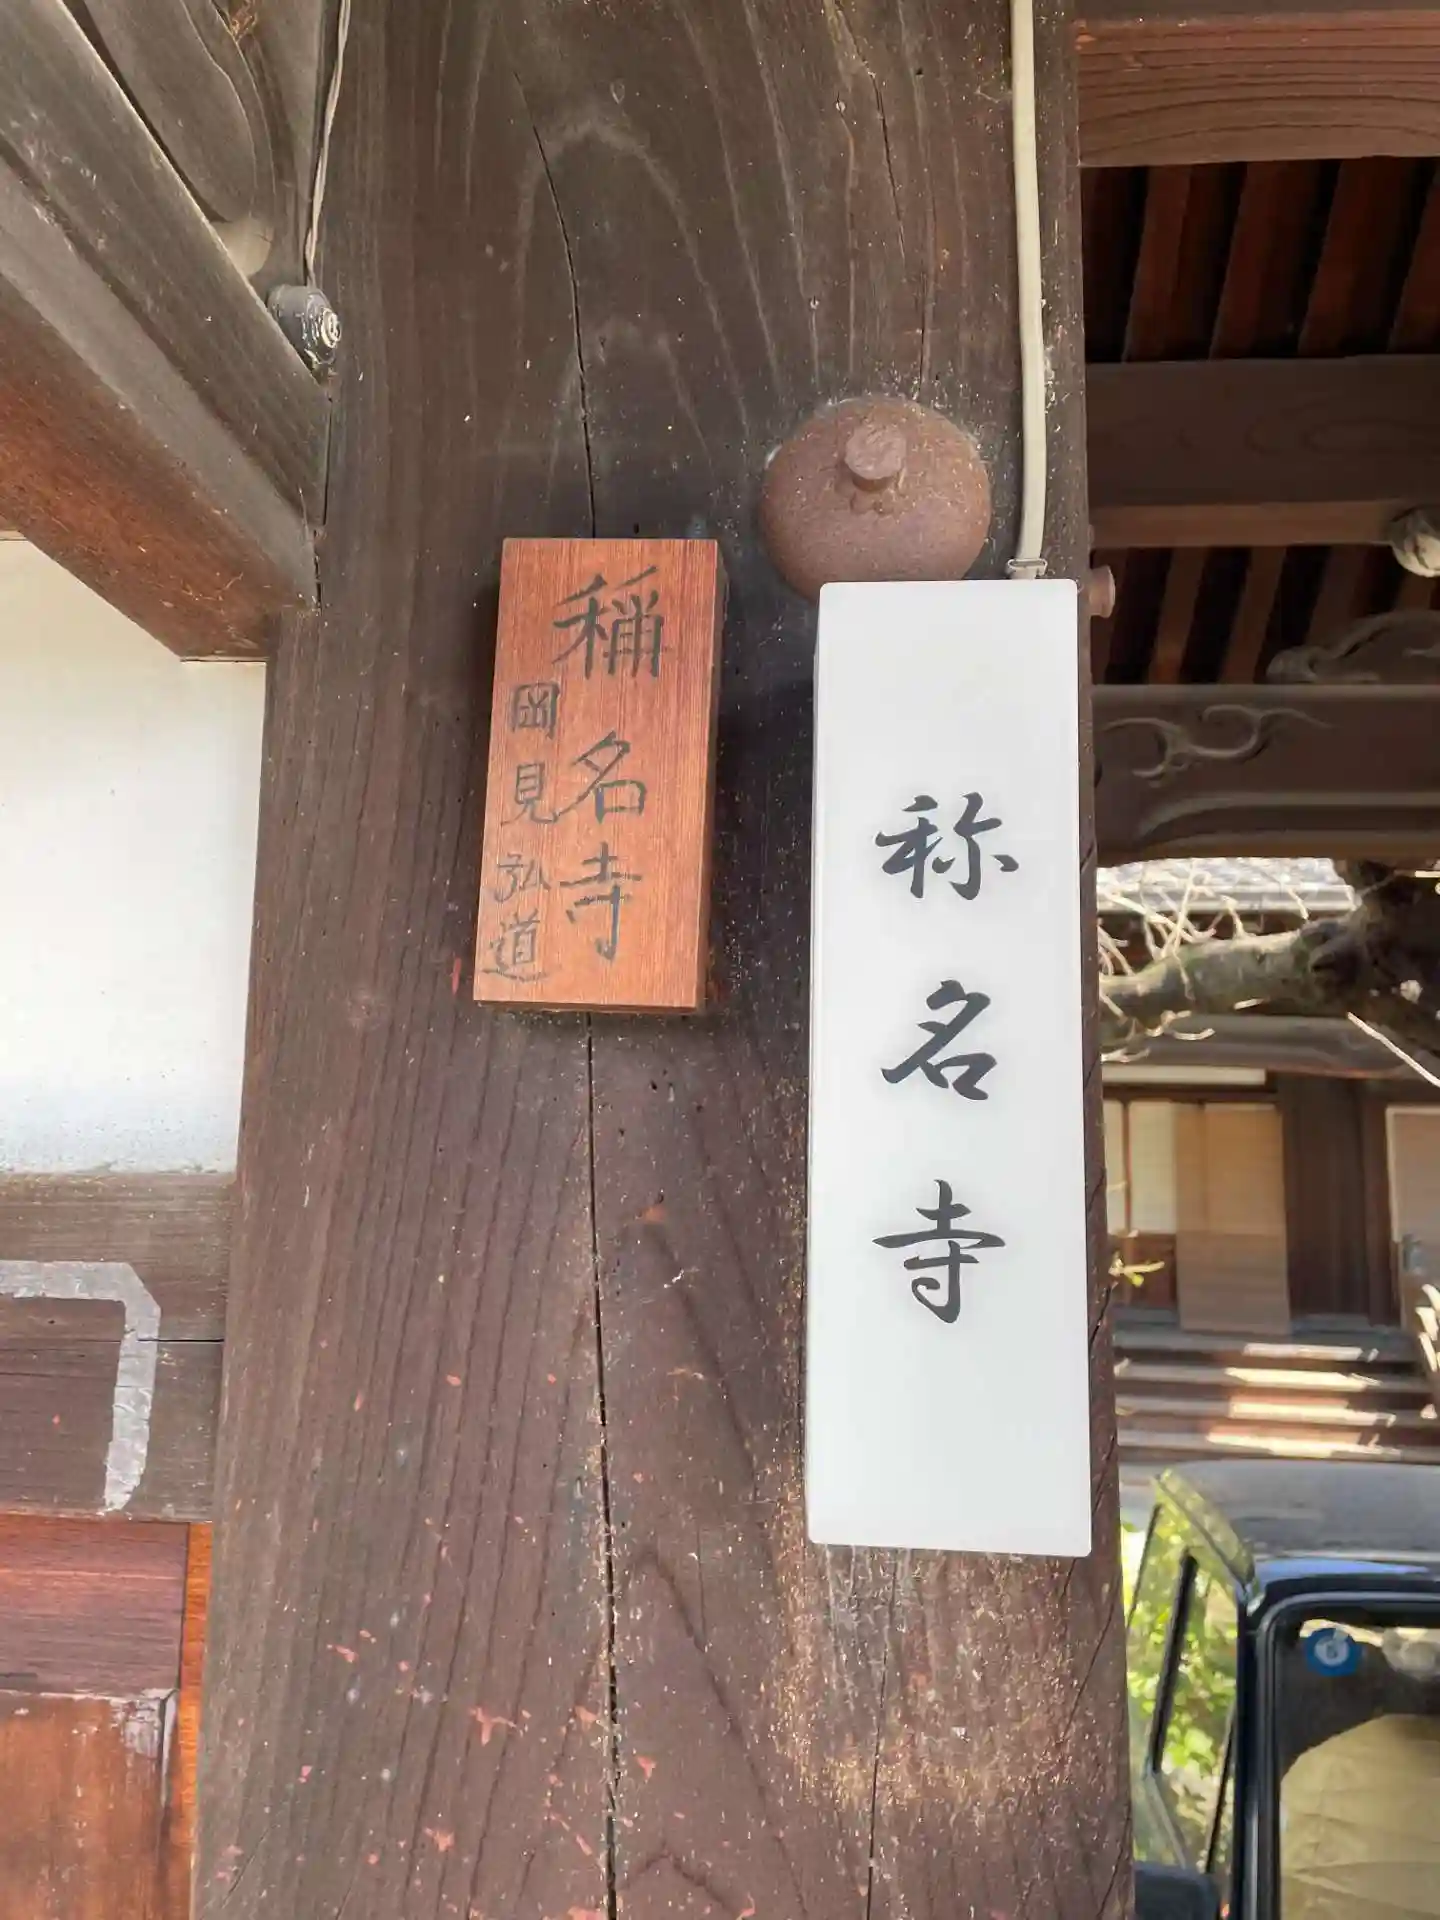 称名寺
稱名寺
岡見弘道